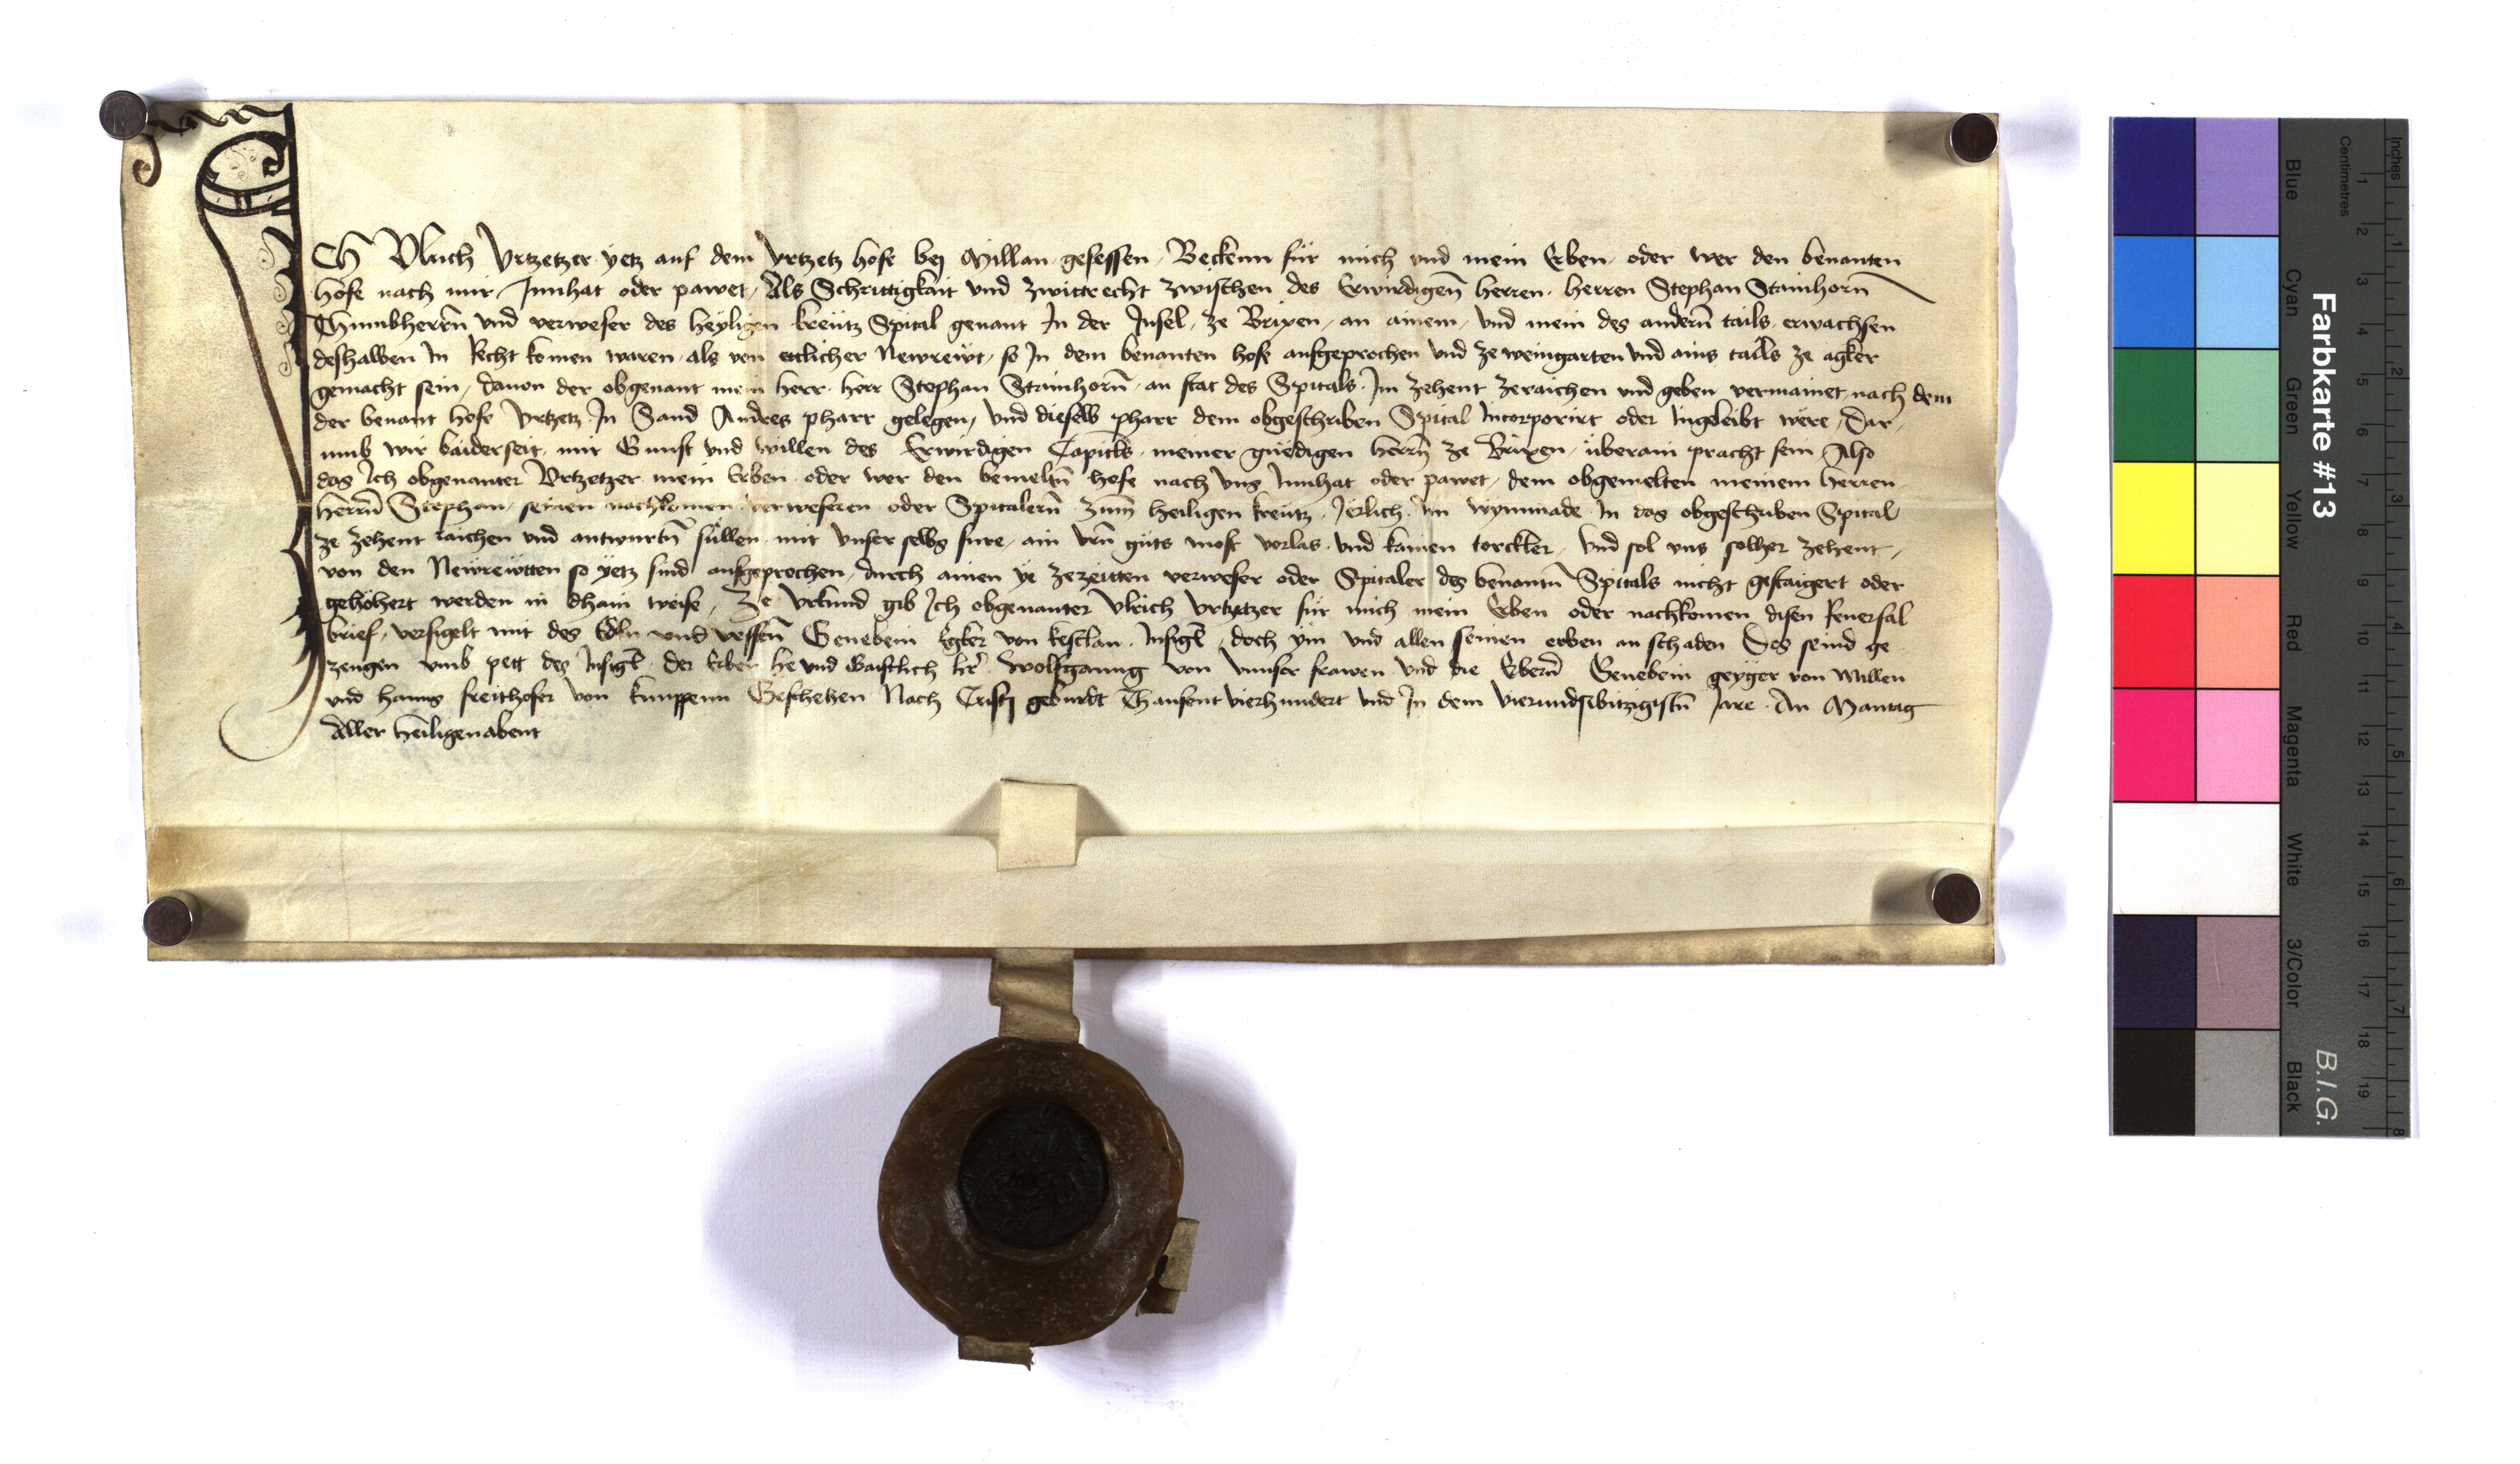 Ich Vlrich Vrtzetzer yetz auf dem Vrtzetz hofe bej Millan gesessen Bekenn für mich vnd mein Erben oder wer den benanten
hofe nach mir Innhat oder pawet, Als Schrittigkait vnd zwittrecht zwischen des Erwirdigen̄ herren herren Stephan Stainhorn̄
Thumbherrn̄ vnd verweser des heyligen kreütz Spital genant In der Insel, ze Brixen, an ainem, vnd mein des andern̄ tails erwachsen
deshalben In Recht komen waren, als von ettlicher Newrewt, so In dem benanten hofe aufgeprochen vnd ze weingarten vnd ains tails ze agker
gemacht sein, dauon der obgenant mein herr herr Stephan Stainhorn̄ an stat des Spitals Im zehent zeraichen vnd geben vermainet nach dem
der benant hofe Vrtzetz In Sand Andres pharr gelegen, vnd dieselb pharr dem obgeschriben Spital Incorporirt oder Ingeleibt were, Dar,
umb wir baiderseit mit Gunst vnd willen des Erwirdigen Capitls meiner gnëdigen herrn̄ ze Brixen überain pracht sein Also
das Ich obgenanter Vrtzetzer mein Erben oder wer den bemeltn̄ hofe nach vns Innhat oder pawet, dem obgemelten meinem herren
herrn̄ Stephan, seinen nachkomen verweseren oder Spitalern̄ zum̄ heiligen kreütz Jërlich Im wymmade In das obgeschriben Spital
ze zehent raichen vnd antwurtn̄ süllen mit vnser selbs fure, ain vrn̄ güts most vorlas vnd kainen torckler, vnd sol vns solher zehent,
von den Newrewtten so yetz sind aufgeprochen, durch ainen ye zezeitten verweser oder Spitaler des benantn̄ Spitals nicht gestaigert oder
gehöhert werden in dhain weise, Ze vrkund gib Ich obgenanter Vlrich Vrtzetzer für mich mein Erben oder nachkomen disen Reuersal
brief, versigelt mit des Edln vnd vessn̄ Genebein Egker von kestlan Insigl̄, doch ym vnd allen seinen erben an schaden Des seind ge
zeugen vmb pett des Insigl̄ der Erber he vnd Gaistlich hr̄ Wolfganng von vnnser frawen vnd die Ebern̄ Genebein geyger von Millen
vnd hanns freithofer von knuppenn Geschehen Nach Cristj geburdt Thausent vierhundert vnd In dem vierundsibitzigistn̄ Jare An Mantag
Aller heiligen abent
Farbkarte #13
B.I.G.
Blue
Cyan
Green
Yellow
Red
Magenta
White
3/Color
Black
Centimetres
1 2 3 4 5 6 7 8 9 10 11 12 13 14 15 16 17 18 19
Inches
1 2 3 4 5 6 7 8